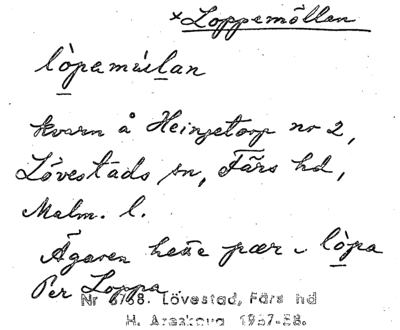 ×Loppemöllan
lòpemúlan
kvarn å Heinzetorp nr 2,
Lövestads sn, Färs hd,
Malm. l.
Ägaren hette pær i lòpa
Per Loppa
Nr 6768. Lövestad, Färs hd
H. Areskoug 1937-38.